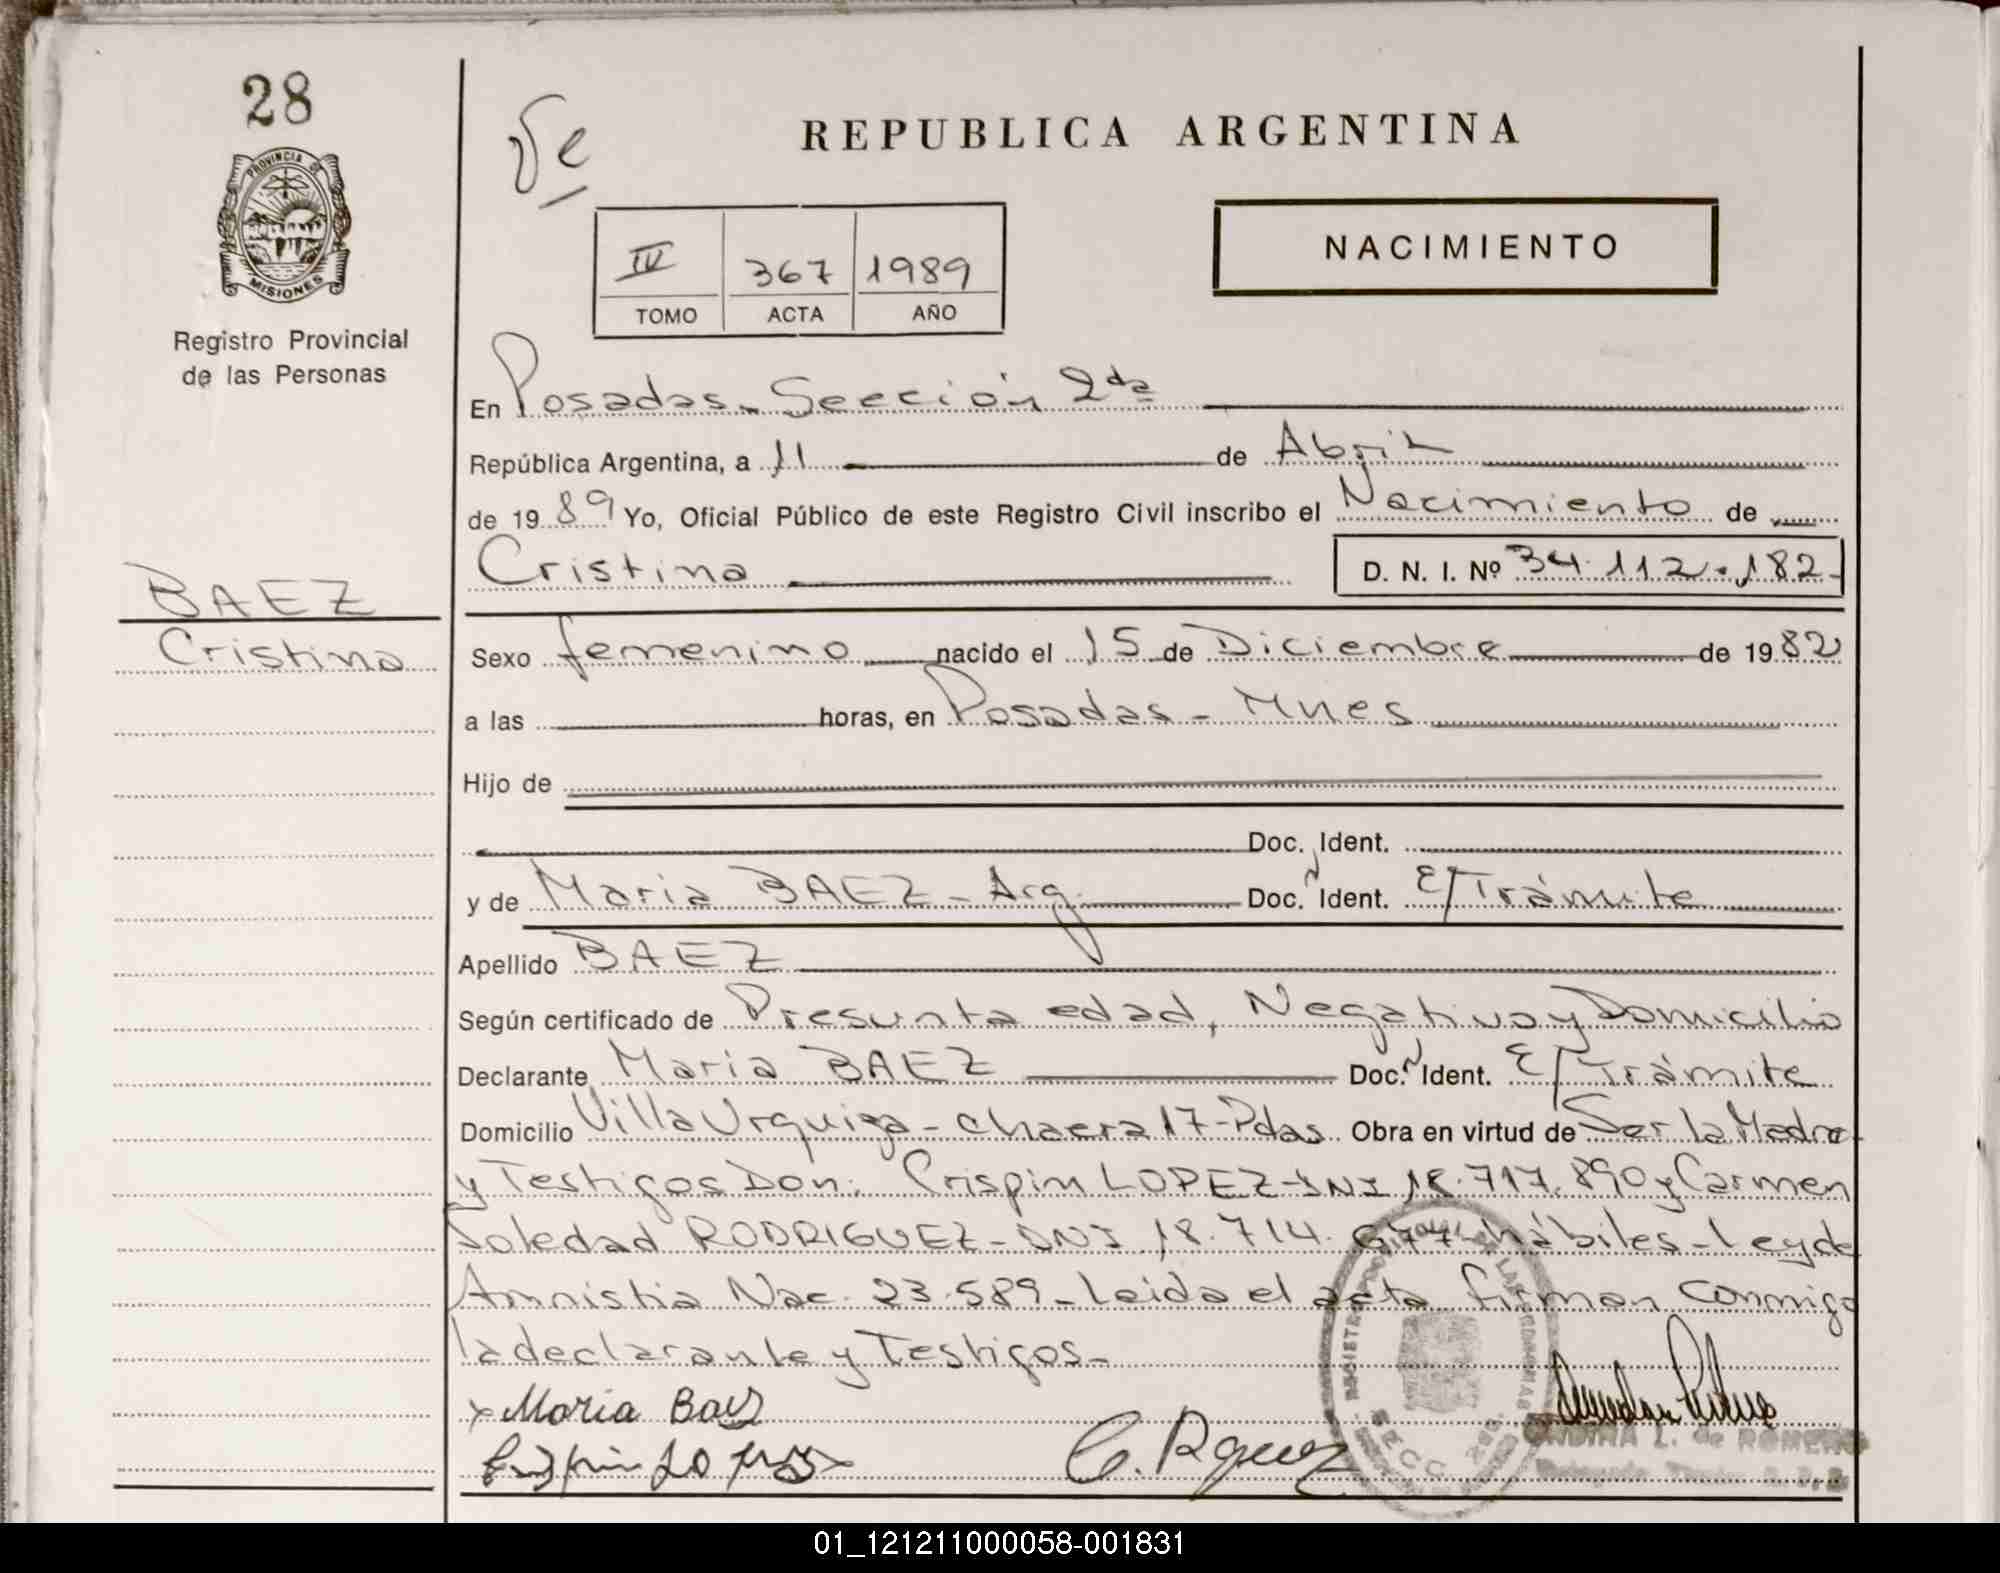 28
PROVINCIA DE
MISIONES
Registro Provincial
de las Personas
REPUBLICA ARGENTINA
NACIMIENTO
IV 367 1989
TOMO ACTA AÑO
En Posadas - Sección 2da
República Argentina, a 11 de Abril
de 1989 Yo, Oficial Público de este Registro Civil inscribo el Nacimiento de
Cristina D. N. I. Nº 34.112.182-
BAEZ
Cristina
Sexo femenino nacido el 15 de Diciembre de 1982
a las horas, en Posadas - Mnes
Hijo de
Doc. Ident.
y de Maria BAEZ - Arg. Doc. Ident. E/Trámite
Apellido BAEZ
Según certificado de Presunta edad, Negativo y Domicilio
Declarante Maria BAEZ Doc. Ident. E/Trámite
Domicilio Villa Urquiza - chacra 17 - Pdas. Obra en virtud de Ser la Madre
y Testigos Don: Crispin LOPEZ - DNI 18.717.890 y Carmen
Soledad RODRIGUEZ - DNI 18.714.677 - hábiles - Ley de
Amnistia Nac. 23.589 - Leida el acta firman conmigo
la declarante y Testigos -
x Maria Baez
Crispin Lopez C. Rguez
SECC. 2da.
ONDINA L. de ROMERO
01_121211000058-001831